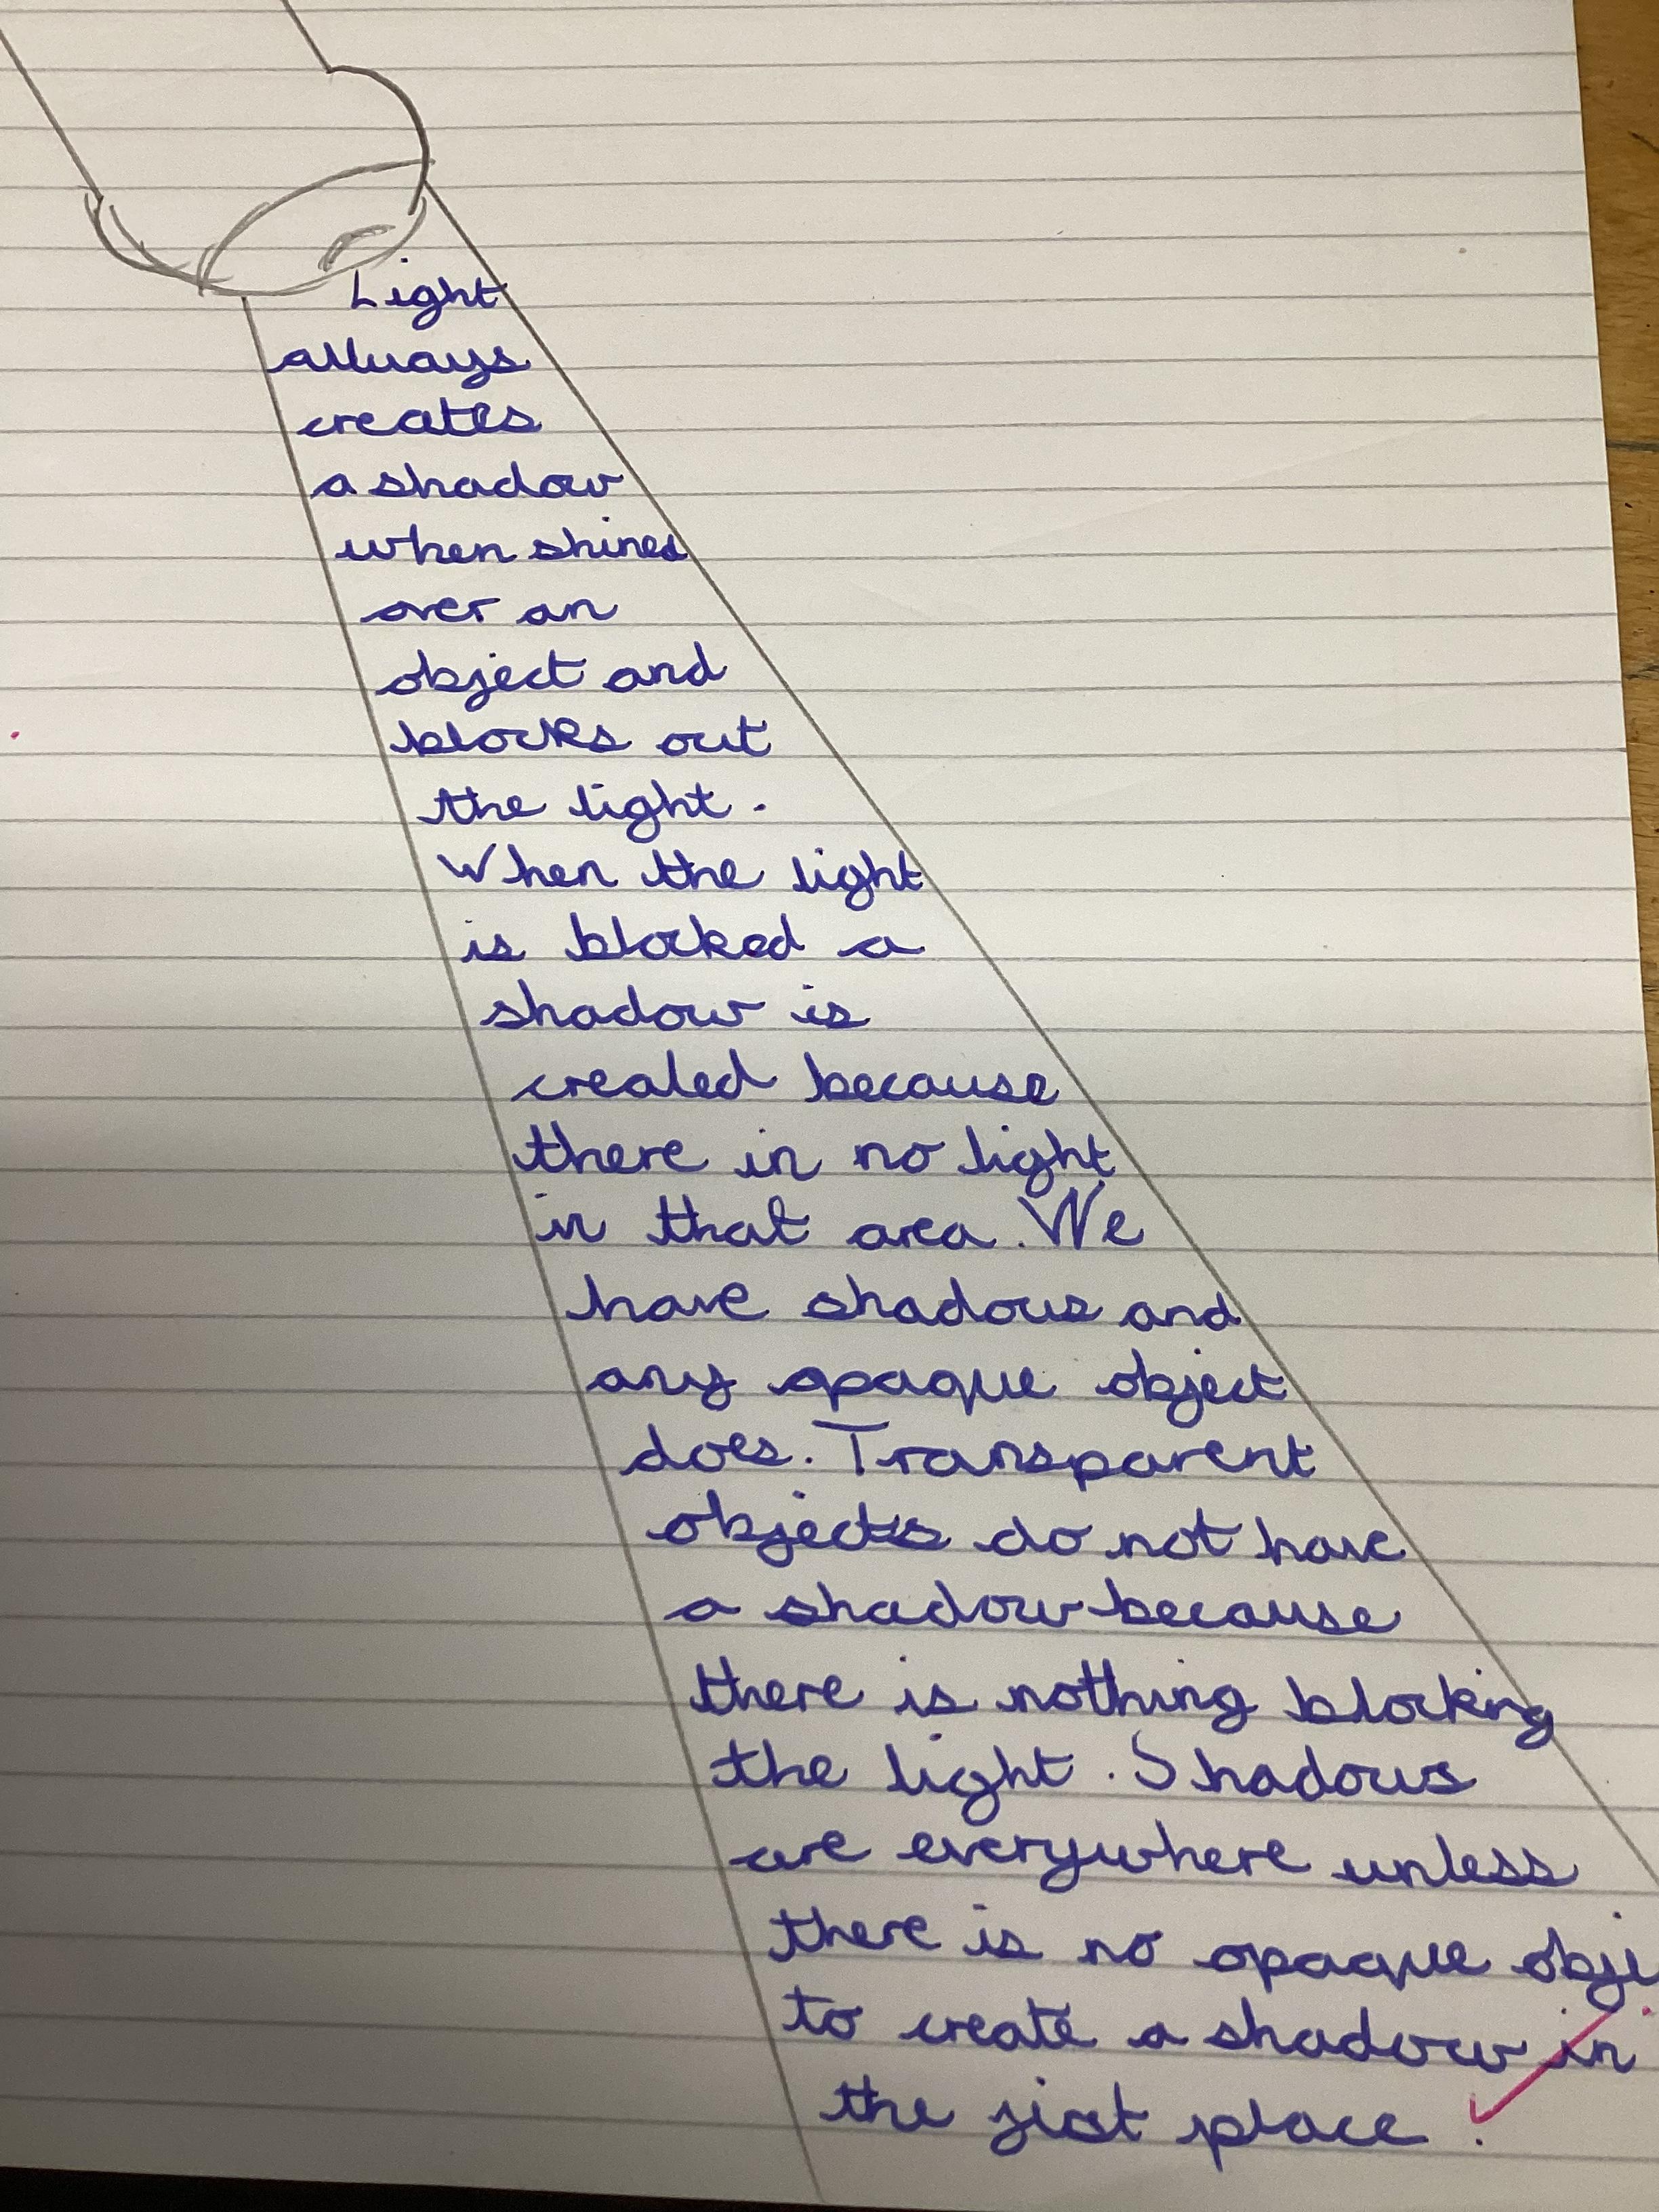 Light
allways
creates
a shadow
when shined
over an
object and
blocks out
the light.
When the light
is blocked a
shadow is
created because
there in no light
in that area. We
have shadous and
any opaque object
does. Transparent
objects do not have
a shadow because
there is nothing blocking
the light. Shadous
are everywhere unless
there is no opaque obje
to create a shadow in
the first place.